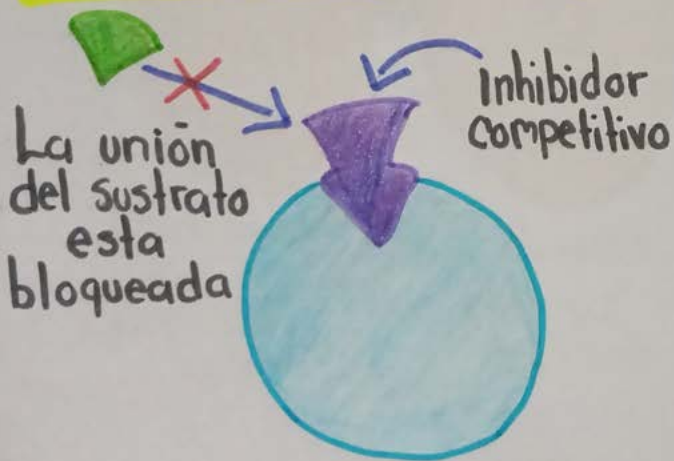 La unión
del sustrato
esta
bloqueada
Inhibidor
competitivo